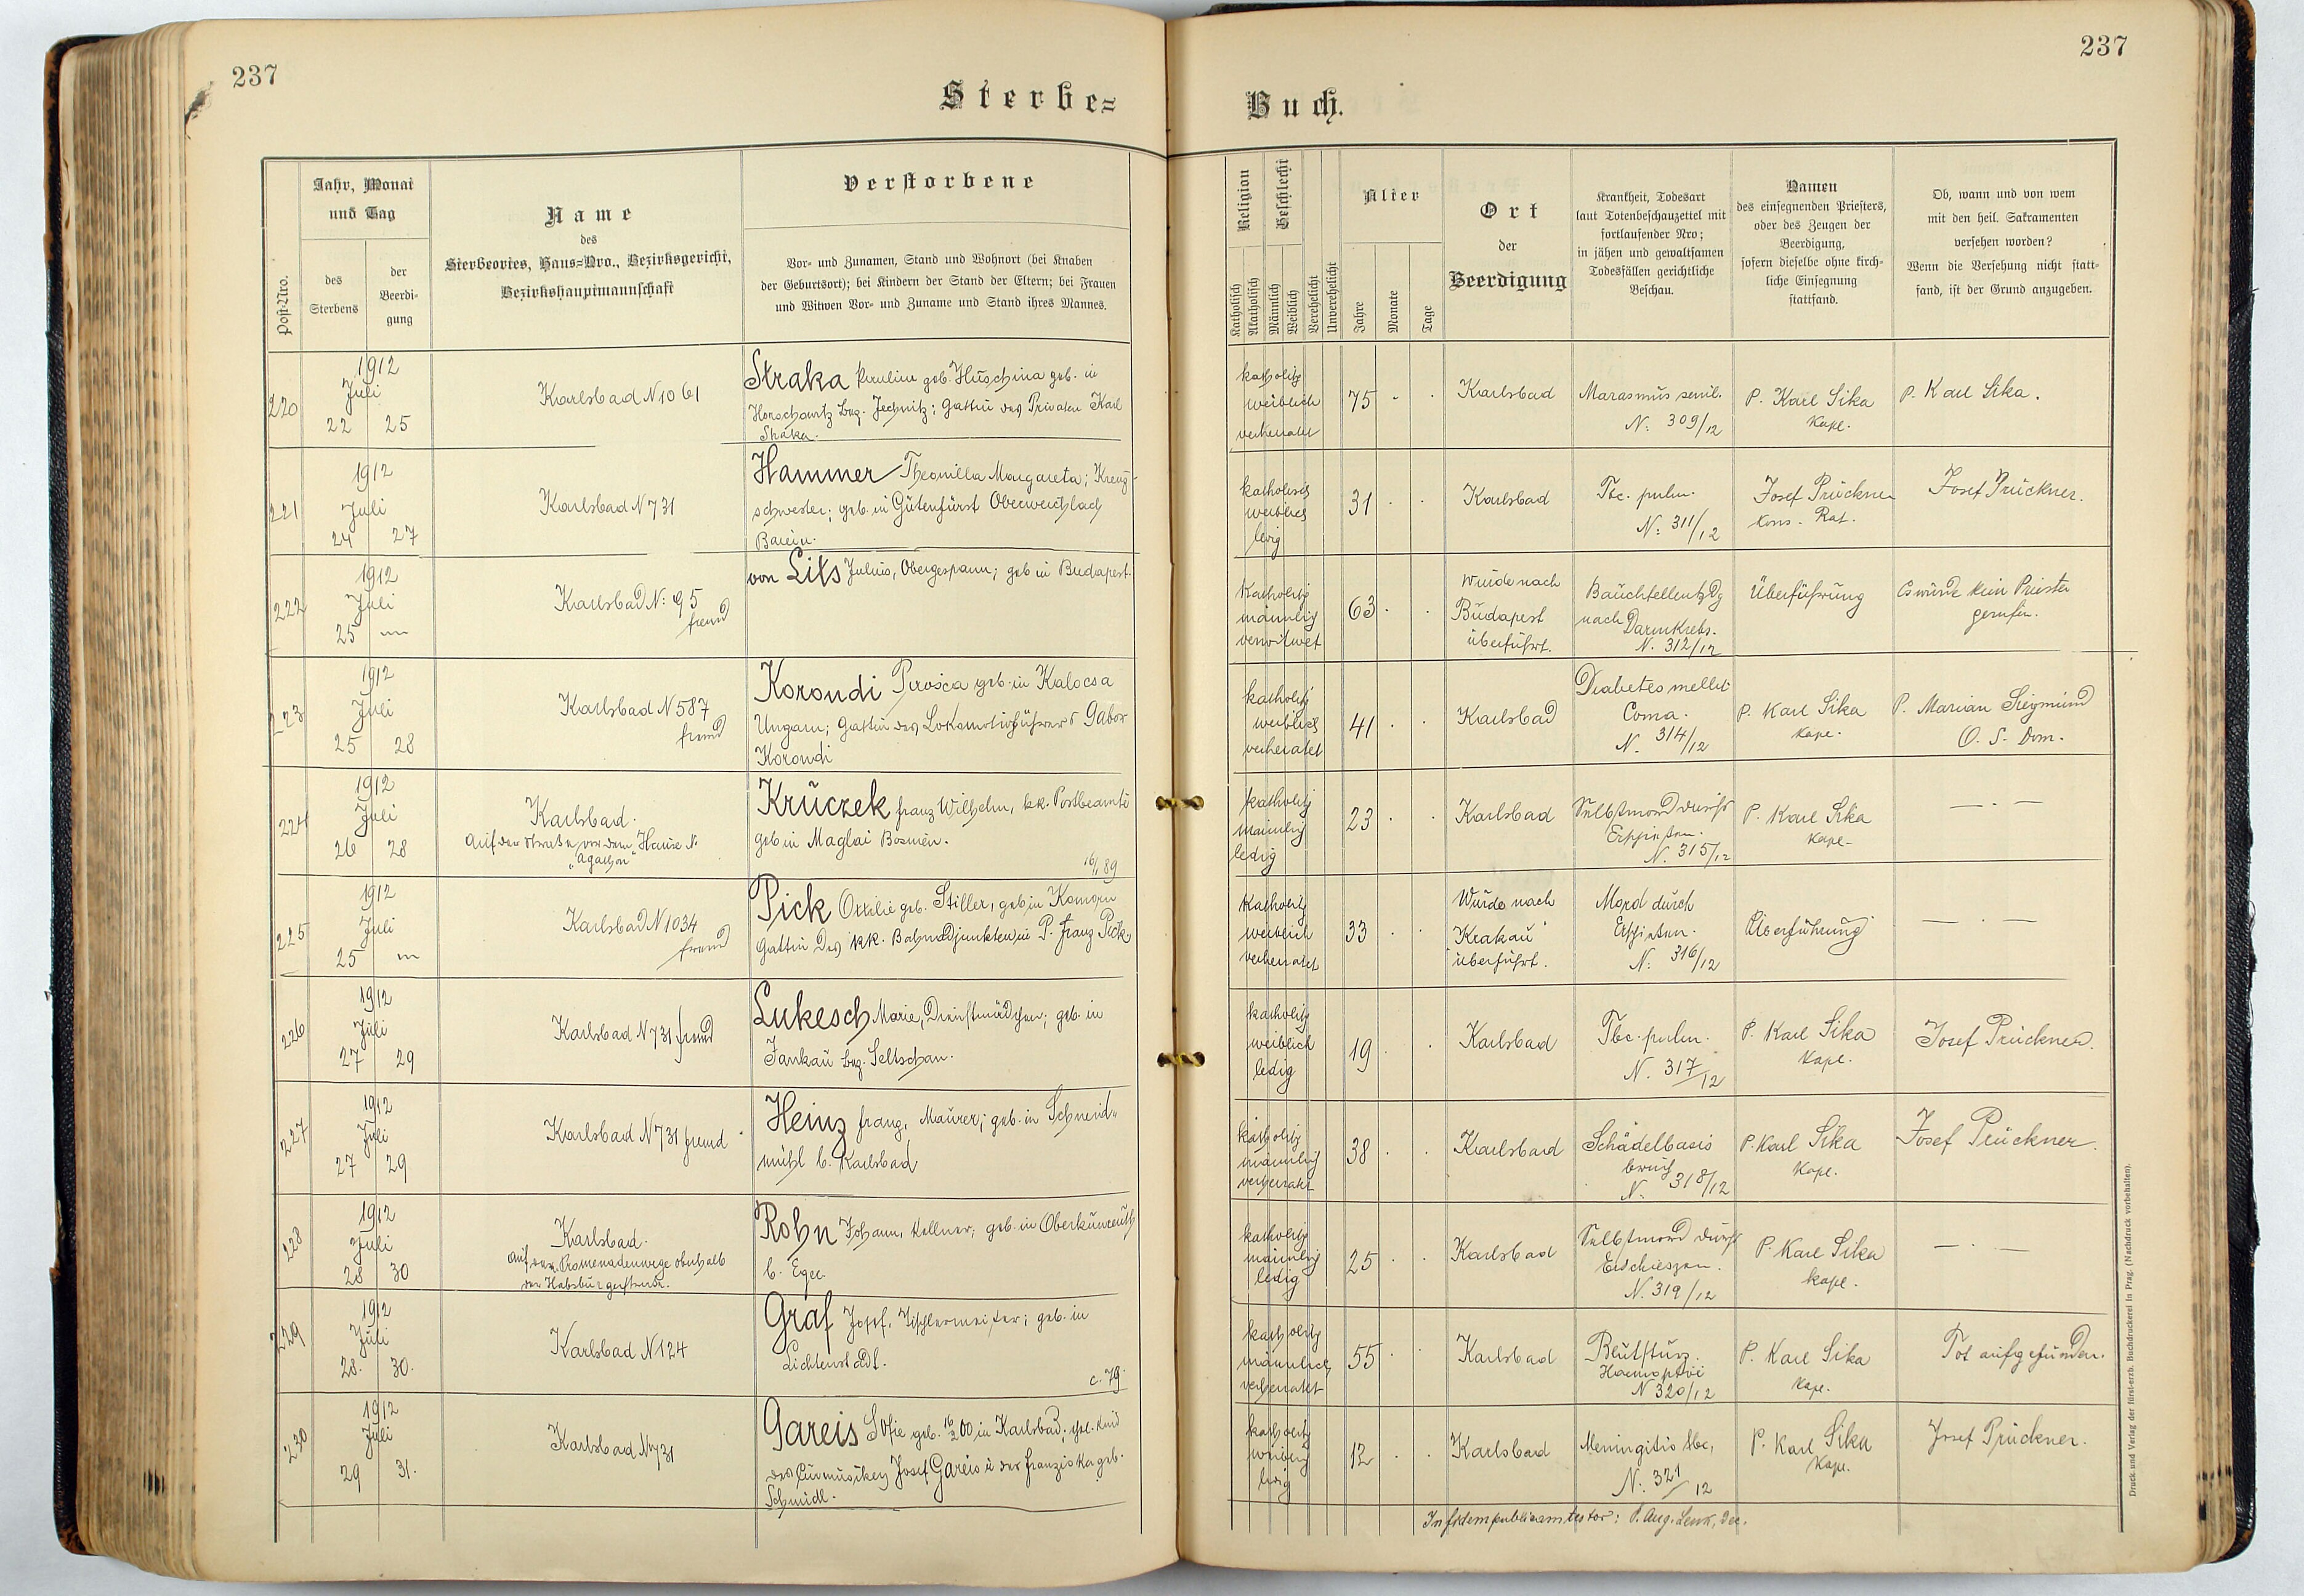 237
237
Sterbe=
Buch.
Post-Nro.
Jahr, Monat
und Tag
des
Sterbens
der
Beerdi-
gung
Name
des
Sterbeortes, Haus=Nro., Bezirksgericht,
Bezirkshauptmannschaft
Verstorbene
Vor- und Zunamen, Stand und Wohnort (bei Knaben
der Geburtsort); bei Kindern der Stand der Eltern; bei Frauen
und Witwen Vor- und Zuname und Stand ihres Mannes.
Religion
Katholisch
Akatholisch
Geschlecht
Männlich
Weiblich
Verehelicht
Unverehelicht
Alter
Jahre
Monate
Tage
Ort
der
Beerdigung
Krankheit, Todesart
laut Totenbeschauzettel mit
fortlaufender Nro;
in jähen und gewaltsamen
Todesfällen gerichtliche
Beschau.
Namen
des einsegnenden Priesters,
oder des Zeugen der
Beerdigung,
sofern dieselbe ohne kirch-
liche Einsegnung
stattfand.
Ob, wann und von wem
mit den heil. Sakramenten
versehen worden?
Wenn die Versehung nicht statt-
fand, ist der Grund anzugeben.
220
1912
Juli
22 25
Karlsbad N 1061
Straka Pauline geb. Huschina geb. in
Bez. Jechnitz; Gattin des Privaten Karl
Straka.
katholisch
weiblich
verheiratet
75
Karlsbad
Marasmus senil.
N: 309/12
P. Karl Sika
Kapl.
P. Karl Sika.
221
1912
Juli
24 27
Karlsbad N 731
Hammer Theonilla Margareta; Kreuz-
schwester; geb. in Gutenfürst
Baiern.
katholisch
weiblich
ledig
31
Karlsbad
Tbc. pulm.
N: 311/12
Josef Prückner
Kons. Rat.
Josef Prückner.
222
1912
Juli
25
Karlsbad N: 95
fremd
von Lits Julius, Obergespann; geb in Budapest.
Katholisch
männlich
verwitwet
63
Wurde nach
Budapest
überführt.
nach Darmkrebs.
N. 312/12
Überführung
Es wurde kein Priester
gerufen.
223
1912
Juli
25 28
Karlsbad N 587
fremd
Korondi Pirośca geb. in Kalocsa
Ungarn; Gattin des Lokomotivführers Gabor
Korondi
katholisch
weiblich
verheiratet
41
Karlsbad
Diabetes mellit
Coma.
N. 314/12
P. Karl Sika
Kapl.
P. Marian Siegmund
O. S. Dom.
224
1912
Juli
26 28
Karlsbad.
Auf der Strasse vor dem Hause N.
"Agathon"
Kruczek Franz Wilhelm, kk. Postbeamte
geb in Maglai Bosnien.
katholisch
männlich
ledig
23
Karlsbad
Selbstmord durch
Erschießen.
N. 315/12
P. Karl Sika
Kapl.
— . —
225
1912
Juli
25
Karlsbad N 1034
fremd
Pick Ottilie geb. Stiller, geb in Komorn
Gattin des kk. Bahnadjunkten in P. Franz Pick
Katholisch
weiblich
verheiratet
33
Wurde nach
Krakau
überführt.
Mord durch
Erschießen.
N: 316/12
Überführung
— . —
226
1912
Juli
27 29
Karlsbad N 731 fremd
Lukesch Marie, Dienstmädchen; geb. in
Jankau bez. Seltschan.
katholisch
weiblich
ledig
19
Karlsbad
Tbc. pulm.
N. 317/12
P. Karl Sika
Kapl.
Josef Prückner.
227
1912
Juli
27 29
Karlsbad N 731 fremd
Heinz Franz, Maurer; geb. in Schneid-
mühl b. Karlsbad
katholisch
männlich
verheiratet
38
Karlsbad
Schädelbasis
bruch
N. 318/12
P. Karl Sika
Kapl.
Josef Prückner.
228
1912
Juli
28 30
Karlsbad.
Auf dem Promenadenwege oberhalb
der Habsburgerstrasse.
Rohn Johann, Kellner; geb. in Oberkunreuth
b. Eger.
katholisch
männlich
ledig
25
Karlsbad
Selbstmord durch
Erschieszen.
N. 319/12
P. Karl Sika
Kapl.
— . —
229
1912
Juli
28. 30.
Karlsbad N 124
Graf Josef, Tischlermeister; geb. in
Lichtenstadt.
c. 79.
katholisch
männlich
verheiratet
55
Karlsbad
Blutsturz.
Haemoptoi
N 320/12
P. Karl Sika
Kapl.
Tot aufgefunden.
230
1912
Juli
29 31.
Karlsbad N 731
Gareis Sofie geb. 16/2 00 in Karlsbad; ehel. Kind
des Curmusikers Josef Gareis u der Franziska geb.
Schmidl.
katholisch
weiblich
ledig
12
Karlsbad
Meningitis tbc,
N: 321/12
P. Karl Sika
Kapl.
Josef Prückner.
In fidem publicam testor: P. Aug. Lenk, Dec.
Druck und Verlag der fürst-erzb. Buchdruckerei in Prag. (Nachdruck vorbehalten).